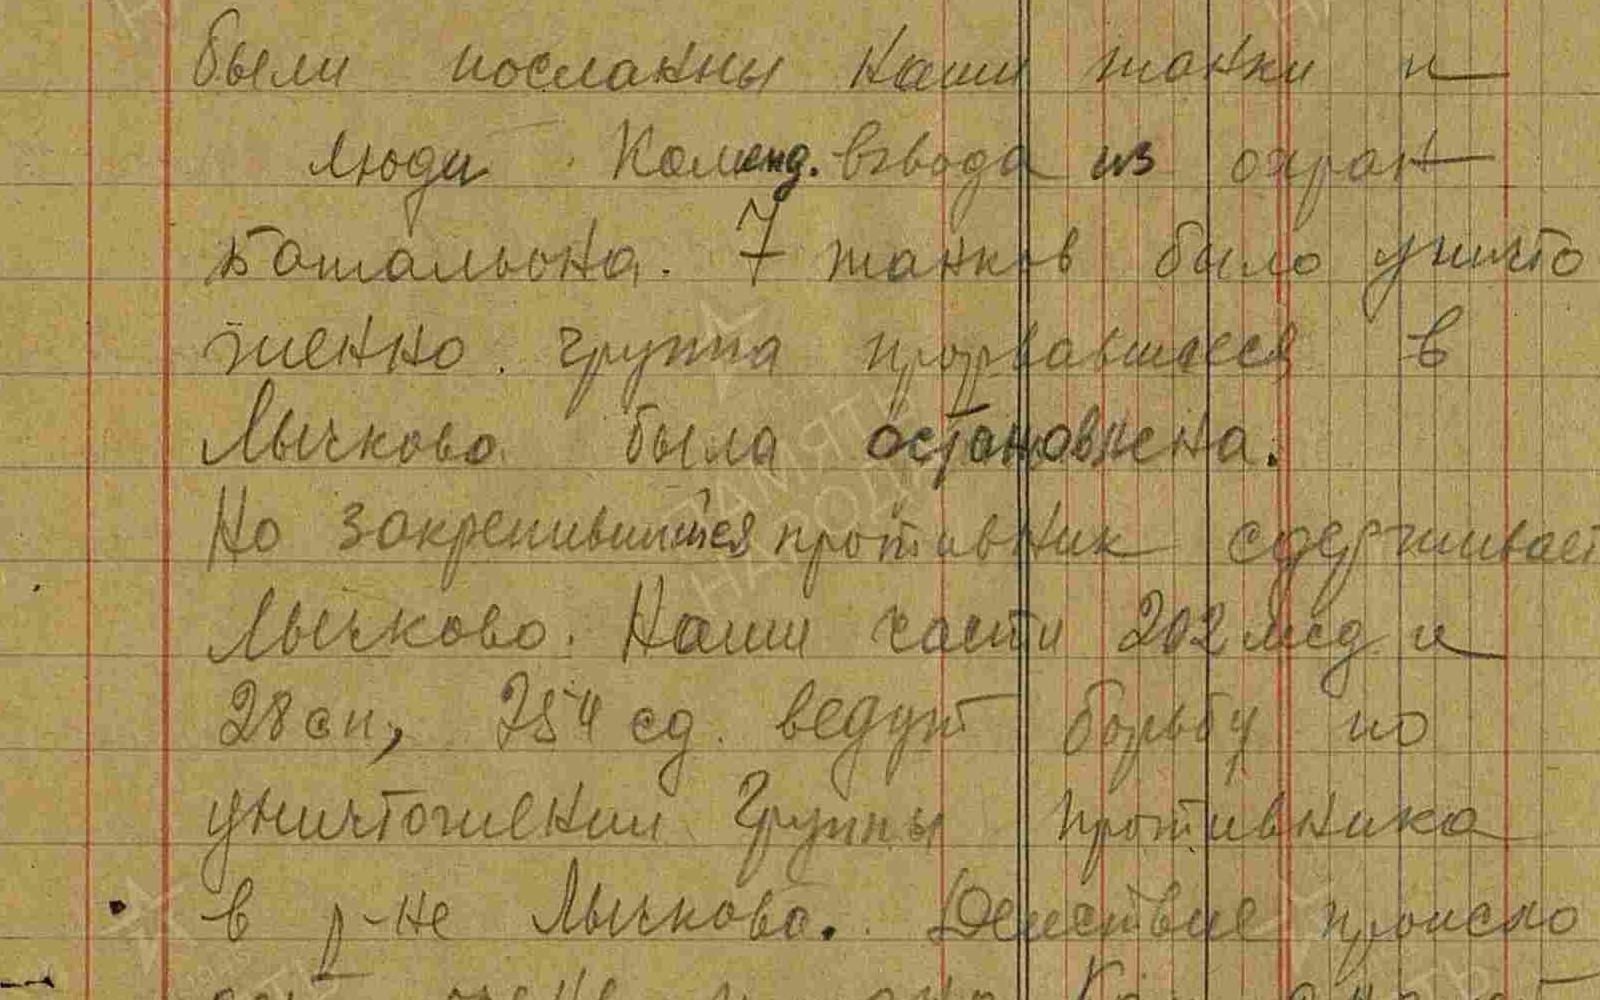 были посланны наши танки и
люди Коменд. взвода из охран
батальона. 7 танков было уничто
женно. группа прорвавшееся в
Лычково была остановлена.
Но закрепившийся противник сдерживает
Лычково. Наши части 202 мсд и
28 сп, 254 сд. ведут борьбу по
уничтожении группы противника
в р-не Лычково. Действие происхо
ПАМЯТЬ
НАРОДА